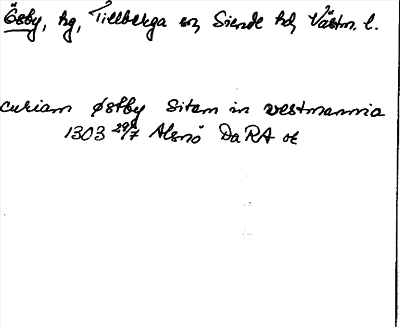 Ösby, hg, Tillberga sn, Siende hd, Västm. l.
curiam østby sitam in vestmannia
1303 29/7 Alsnö DaRA or